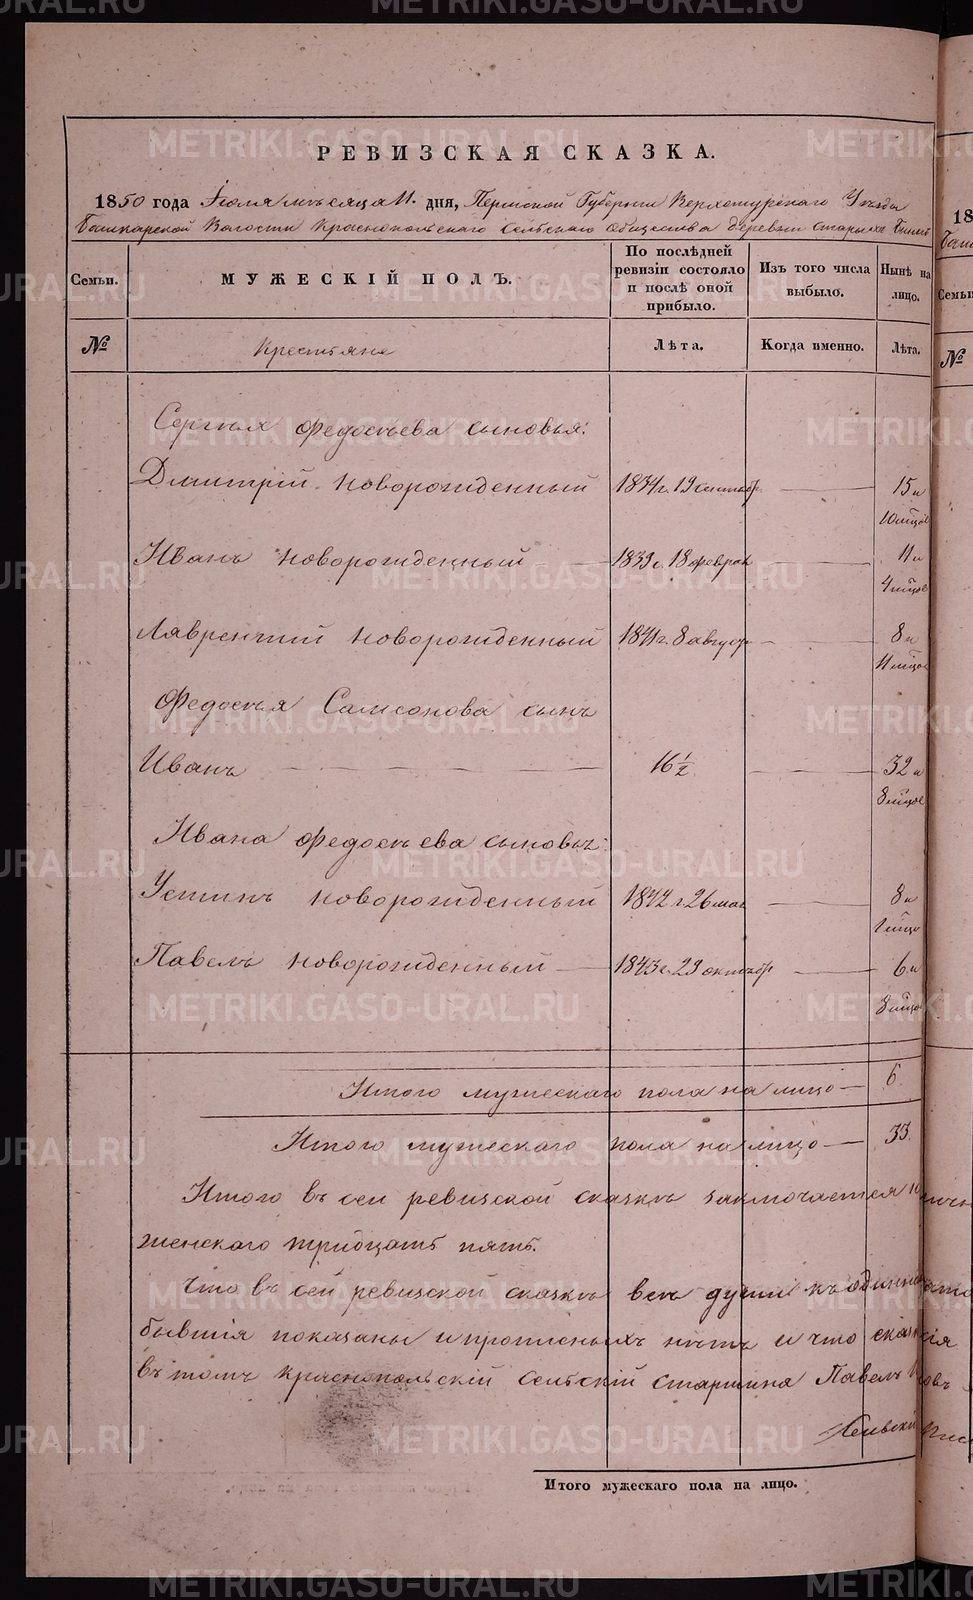 РЕВИЗСКАЯ СКАЗКА.
1850 года Іюля мѣсяца 11. дня, Пермской Губерніи Верхотурскаго Уѣзда
Башкарской Волости Краснопольскаго сельскаго общества деревни старыхъ
Семьи.
МУЖЕСКІЙ ПОЛЪ.
По послѣдней ревизіи состояло и послѣ оной прибыло.
Изъ того числа выбыло.
Нынѣ на лицо.
№
Крестьяне
Лѣта.
Когда именно.
Лѣта.
Сергѣя Федосѣева сыновья:
Дмитрій новорожденный 1834 г. 19 сентябр. 15 и
10 мѣцов
Иванъ новорожденный 1839 г. 18 феврал 11 и
4 мѣцов
Лаврентий новорожденный 1841 г. 8 август 8 и
11 мѣцов
Федосѣя Самсонова сынъ
Иванъ 16 ½ 32 и
8 мѣцов
Ивана Федосѣева сыновья:
Устинъ новорожденный 1842 г 26 мая 8 и
1 мѣцо
Павелъ новорожденный 1843 г. 29 октябр 6 и
8 мѣцов
Итого мужескаго пола на лицо 6
Итого мужескаго пола на лицо 33.
Итого въ сей ревизской сказкѣ заключается
женскаго тридцать пять.
Что въ сей ревизской сказкѣ всѣ души къ
бывшія показаны и прописныхъ нѣтъ и что
въ томъ Краснопольскій Сельскій старшина Павелъ
Итого мужескаго пола на лицо.
METRIKI.GASO-URAL.RU